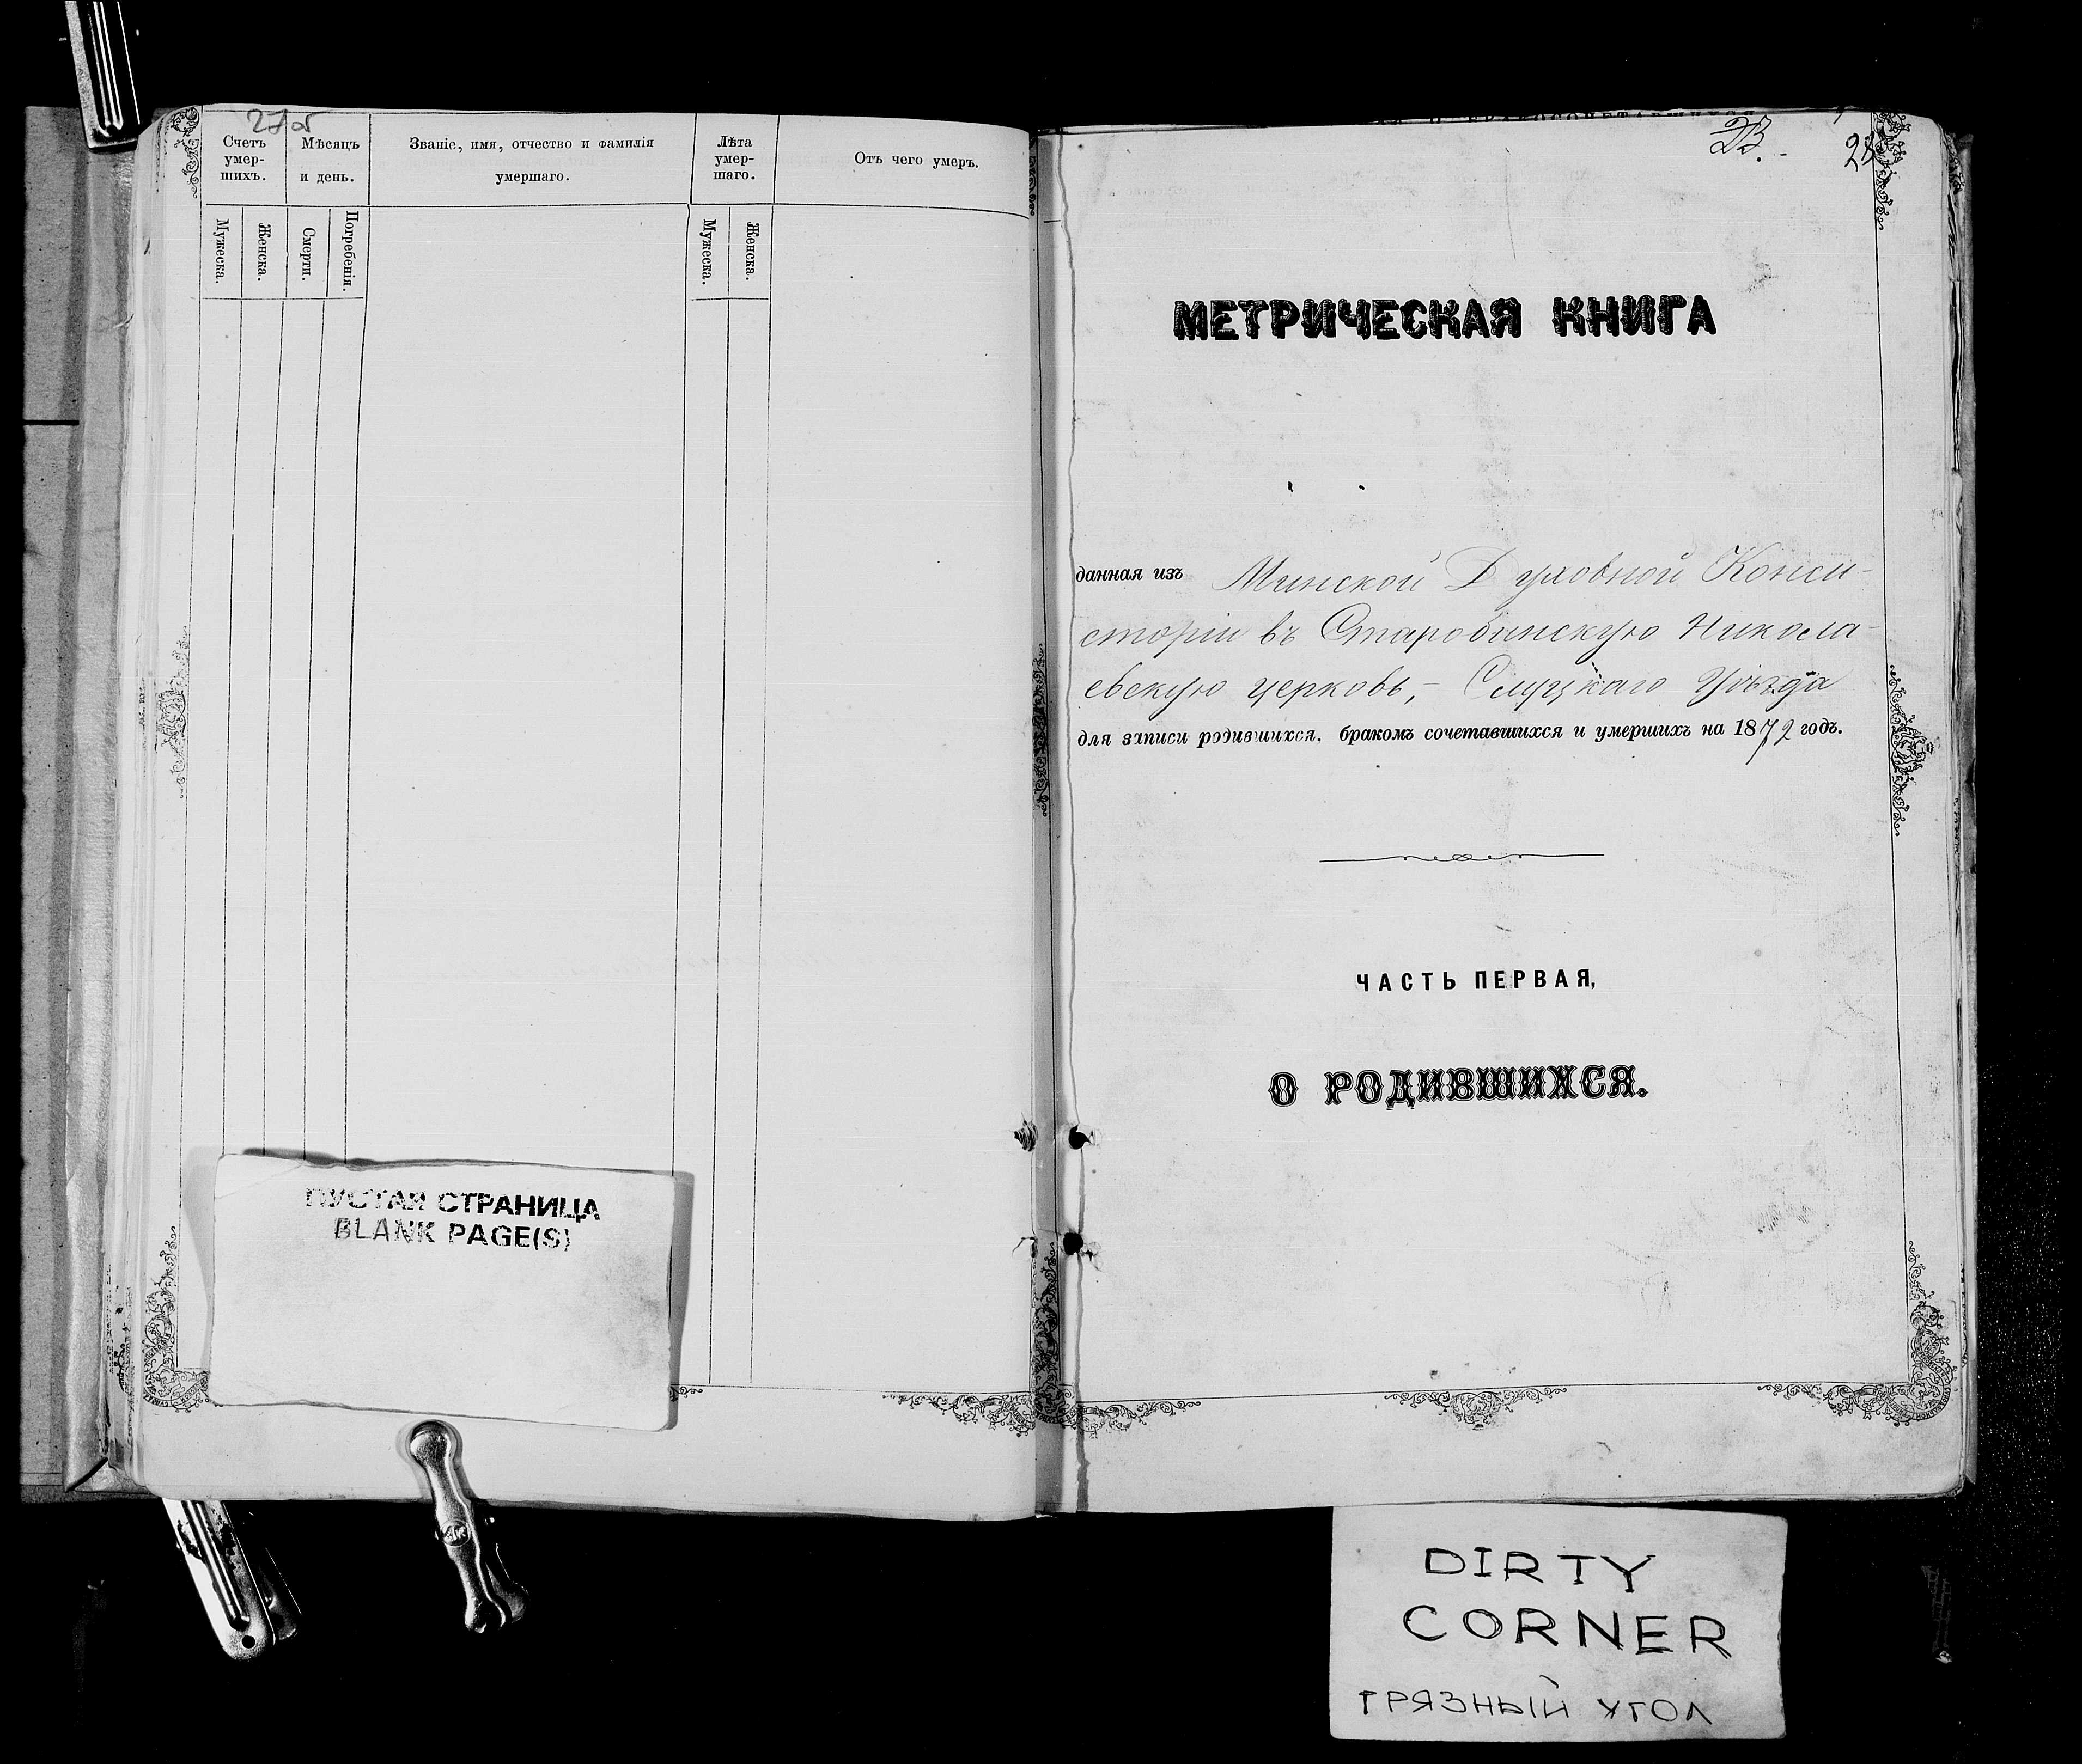 27об
Счетъ
умер-
шихъ.
Мѣсяцъ
и день.
Званіе, имя, отчество и фамилія
умершаго.
Лѣта
умер-
шаго.
Отъ чего умеръ.
Мужеска.
Женска.
Смерти.
Погребенія.
Мужеска.
Женска.
ПУСТАЯ СТРАНИЦА
BLANK PAGE(S)
28
МЕТРИЧЕСКАЯ КНИГА
данная изъ Минской Духовной Конси-
сторіи въ Старобинскую Никола-
евскую церковь,- Слуцкаго Уѣзда
для записи родившихся, бракомъ сочетавшихся и умершихъ на 1872 годъ.
ЧАСТЬ ПЕРВАЯ,
О РОДИВШИХСЯ.
DIRTY
CORNER
ГРЯЗНЫЙ УГОЛ